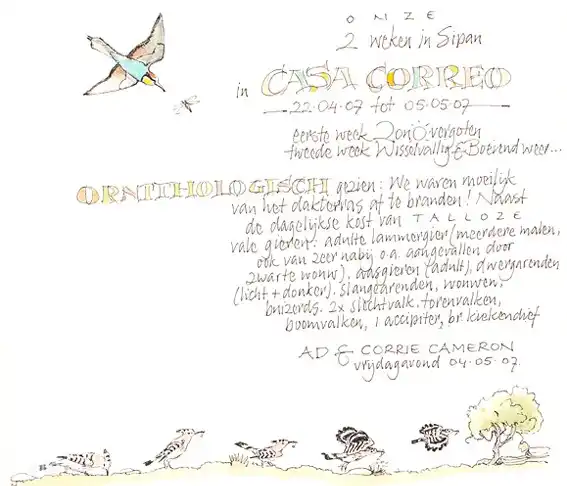 ONZE
2 weken in Sipan
in CASA CORREO
22.04.07 tot 05.05.07
eerste week Zon overgoten
tweede week Wisselvallig & Boeiend weer...
ORNITHOLOGISCH gezien: We waren moeilijk
van het dakterras af te branden! Naast
de dagelijkse kost van TALLOZE
vale gieren: adulte lammergier (meerdere malen,
ook van zeer nabij o.a. aangevallen door
zwarte wouw). aasgieren (adult), dwergarenden
(licht + donker). slangearenden, wouwen,
buizerds. 2x slechtvalk. torenvalken,
boomvalken, 1 accipiter, br kiekendief
AD & CORRIE CAMERON
vrijdagavond 04.05.07.